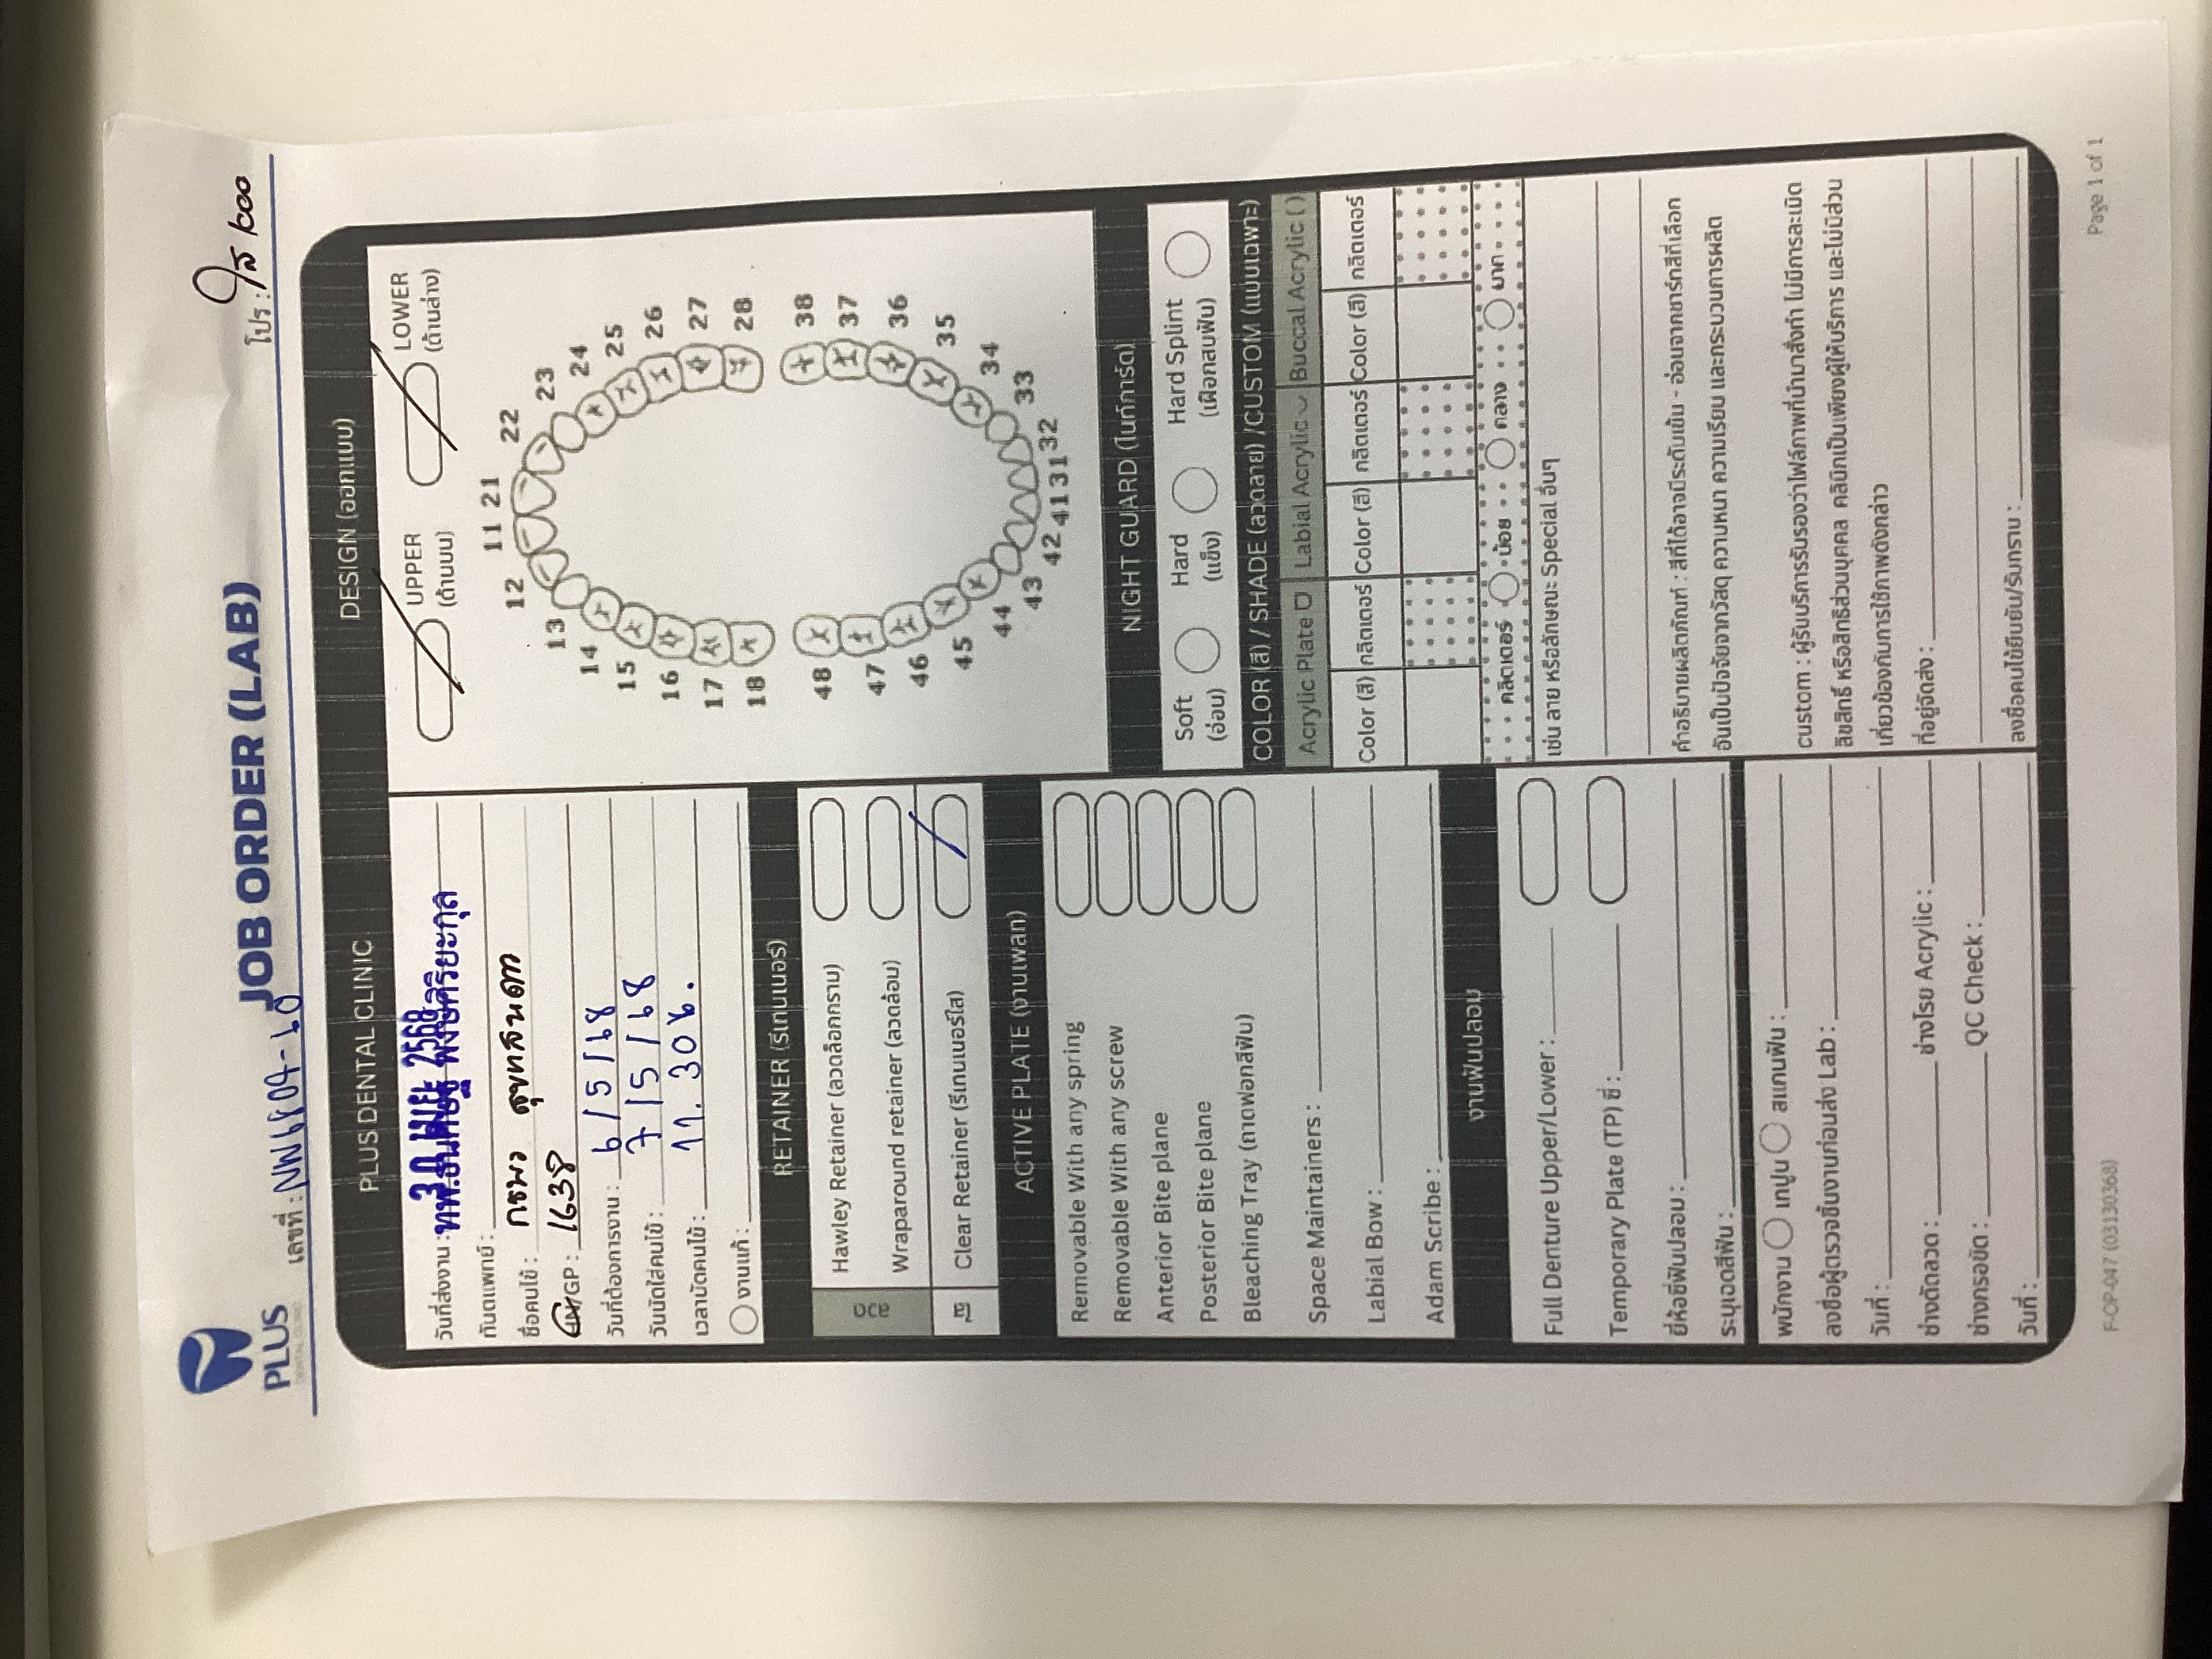 PLUS
DENTAL CLINIC
JOB ORDER (LAB)
เลขที่ : NW6804-60
โปร : ใส 1000
PLUS DENTAL CLINIC
วันที่ส่งงาน : 30 เมย. 2568
ทพ.ธนศิษฐ์ พงษ์ศิริยะกุล
ทันตแพทย์ :
ชื่อคนไข้ :
HN/GP : 1638
วันที่ต้องการงาน : 6/5/68
วันนัดใส่คนไข้ : 7/5/68
เวลานัดคนไข้ : 11.30น.
งานแก้ :
RETAINER (รีเทนเนอร์)
ลวด
Hawley Retainer (ลวดล็อกกราม)
Wraparound retainer (ลวดล้อม)
ใส
Clear Retainer (รีเทนเนอร์ใส)
ACTIVE PLATE (งานเพลท)
Removable With any spring
Removable With any screw
Anterior Bite plane
Posterior Bite plane
Bleaching Tray (ถาดฟอกสีฟัน)
Space Maintainers :
Labial Bow :
Adam Scribe :
งานฟันปลอม
Full Denture Upper/Lower :
Temporary Plate (TP) ซี่ :
ยี่ห้อซี่ฟันปลอม :
ระบุเฉดสีฟัน :
พนักงาน เทปูน สแกนฟัน :
ลงชื่อผู้ตรวจชิ้นงานก่อนส่ง Lab :
วันที่ :
ช่างดัดลวด : ช่างโรย Acrylic :
ช่างกรอขัด : QC Check :
วันที่ :
DESIGN (ออกแบบ)
UPPER
(ด้านบน)
LOWER
(ด้านล่าง)
11 21
12 22
13 23
14 24
15 25
16 26
17 27
18 28
48 38
47 37
46 36
45 35
44 34
43 33
42 41 31 32
NIGHT GUARD (ไนท์การ์ด)
Soft
(อ่อน)
Hard
(แข็ง)
Hard Splint
(เฝือกสบฟัน)
COLOR (สี) / SHADE (ลวดลาย) /CUSTOM (แบบเฉพาะ)
Acrylic Plate Labial Acrylic Buccal Acrylic ( )
Color (สี) กลิตเตอร์ Color (สี) กลิตเตอร์ Color (สี) กลิตเตอร์
กลิตเตอร์ น้อย กลาง มาก
เช่น ลาย หรือลักษณะ Special อื่นๆ
คำอธิบายผลิตภัณฑ์ : สีที่ได้อาจมีระดับเข้ม - อ่อนจากชาร์ทสีที่เลือก
อันเป็นปัจจัยจากวัสดุ ความหนา ความเรียบ และกระบวนการผลิต
custom : ผู้รับบริการรับรองว่าไฟล์ภาพที่นำมาสั่งทำ ไม่มีการละเมิด
ลิขสิทธิ์ หรือสิทธิส่วนบุคคล คลินิกเป็นเพียงผู้ให้บริการ และไม่มีส่วน
เกี่ยวข้องกับการใช้ภาพดังกล่าว
ที่อยู่จัดส่ง :
ลงชื่อคนไข้ยืนยัน/รับทราบ :
F-OP-047 (03130368)
Page 1 of 1